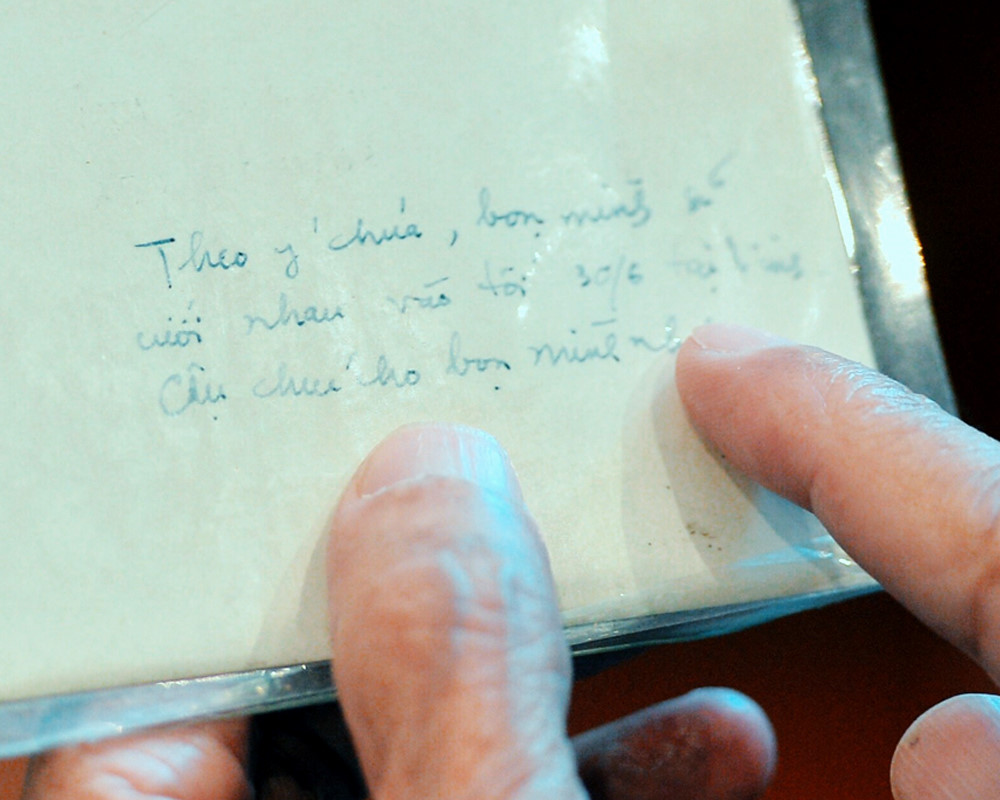 Theo ý chúa, bọn mình sẽ
cưới nhau vào tối 30/6 tại
Cậu chúc cho bọn mình